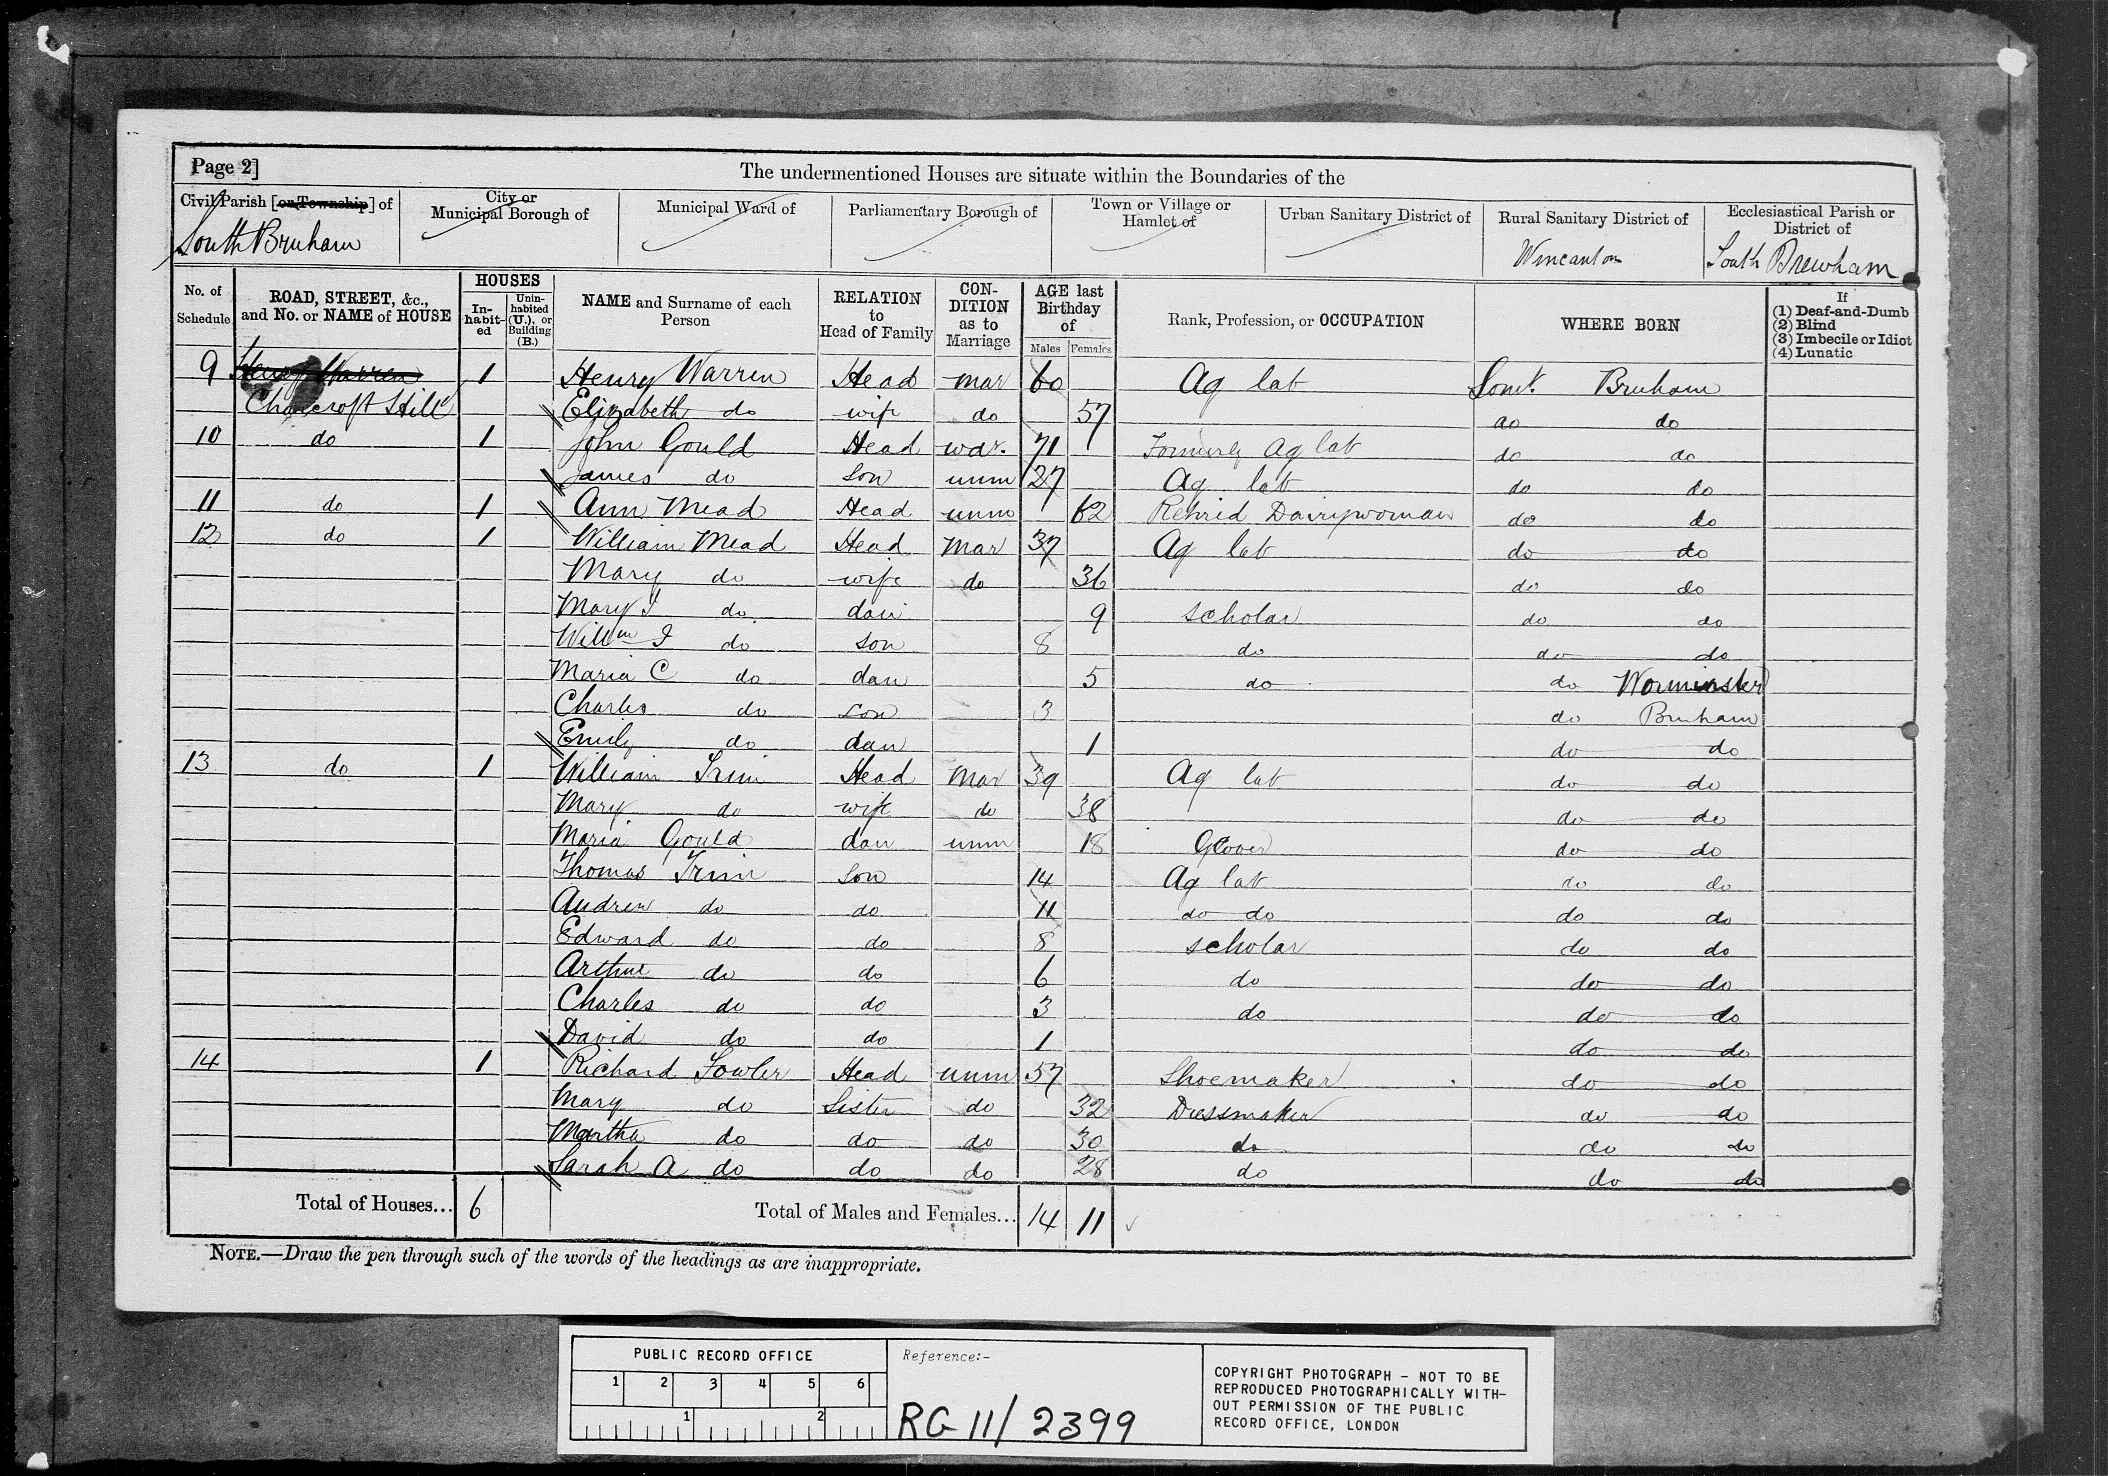 Page 2]
The undermentioned Houses are situate within the Boundaries of the
Civil Parish [or Township] of
South Bruham
City or Municipal Borough of
Municipal Ward of
Parliamentary Borough of
Town or Village or Hamlet of
Urban Sanitary District of
Rural Sanitary District of
Wincanton
Ecclesiastical Parish or District of
South Brewham
No. of Schedule
ROAD, STREET, &c., and No. or NAME of HOUSE
HOUSES
In-habit-ed
Unin-habited (U.), or Building (B.)
NAME and Surname of each Person
RELATION to Head of Family
CON-DITION as to Marriage
AGE last Birthday of
Males
Females
Rank, Profession, or OCCUPATION
WHERE BORN
If
(1) Deaf-and-Dumb
(2) Blind
(3) Imbecile or Idiot
(4) Lunatic
9 Henry Warren 1 Henry Warren Head mar 60 Ag lab Somt. Bruham
Charcroft Hill Elizabeth do wife do 57 do do
10 do 1 John Gould Head wdr. 71 Formerly Ag lab do do
James do Son unm 27 Ag lab do do
11 do 1 Ann Mead Head unm 62 Retired Dairywoman do do
12 do 1 William Mead Head Mar 37 Ag lab do do
Mary do wife do 36 do do
Mary J do dau 9 scholar do do
Willm J do son 8 do do do
Maria C do dau 5 do do Worminster
Charles do son 3 do Bruham
Emily do dau 1 do do
13 do 1 William Trim Head Mar 39 Ag lab do do
Mary do wife do 38 do do
Maria Gould dau unm 18 Glover do do
Thomas Trim Son 14 Ag lab do do
Andrew do do 11 do do do do
Edward do do 8 scholar do do
Arthur do do 6 do do do
Charles do do 3 do do do
David do do 1 do do
14 1 Richard Fowler Head unm 57 Shoemaker do do
Mary do Sister do 32 Dressmaker do do
Martha do do do 30 do do do
Sarah A do do do 28 do do do
Total of Houses... 6
Total of Males and Females... 14 11
NOTE.—Draw the pen through such of the words of the headings as are inappropriate.
PUBLIC RECORD OFFICE
1 2 3 4 5 6
1 2
Reference:-
RG 11/2399
COPYRIGHT PHOTOGRAPH - NOT TO BE
REPRODUCED PHOTOGRAPHICALLY WITH-
OUT PERMISSION OF THE PUBLIC
RECORD OFFICE, LONDON